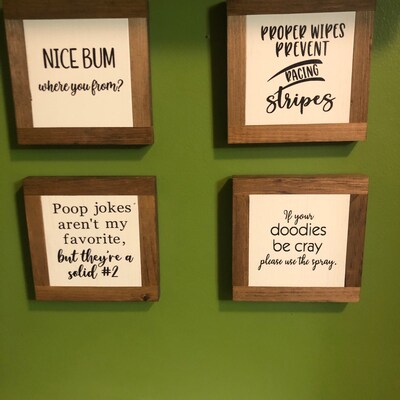 NICE BUM
where you from?
PROPER WIPES
PREVENT
RACING
stripes
Poop jokes
aren't my
favorite,
but they're a
solid #2
If your
doodies
be cray
please use the spray.